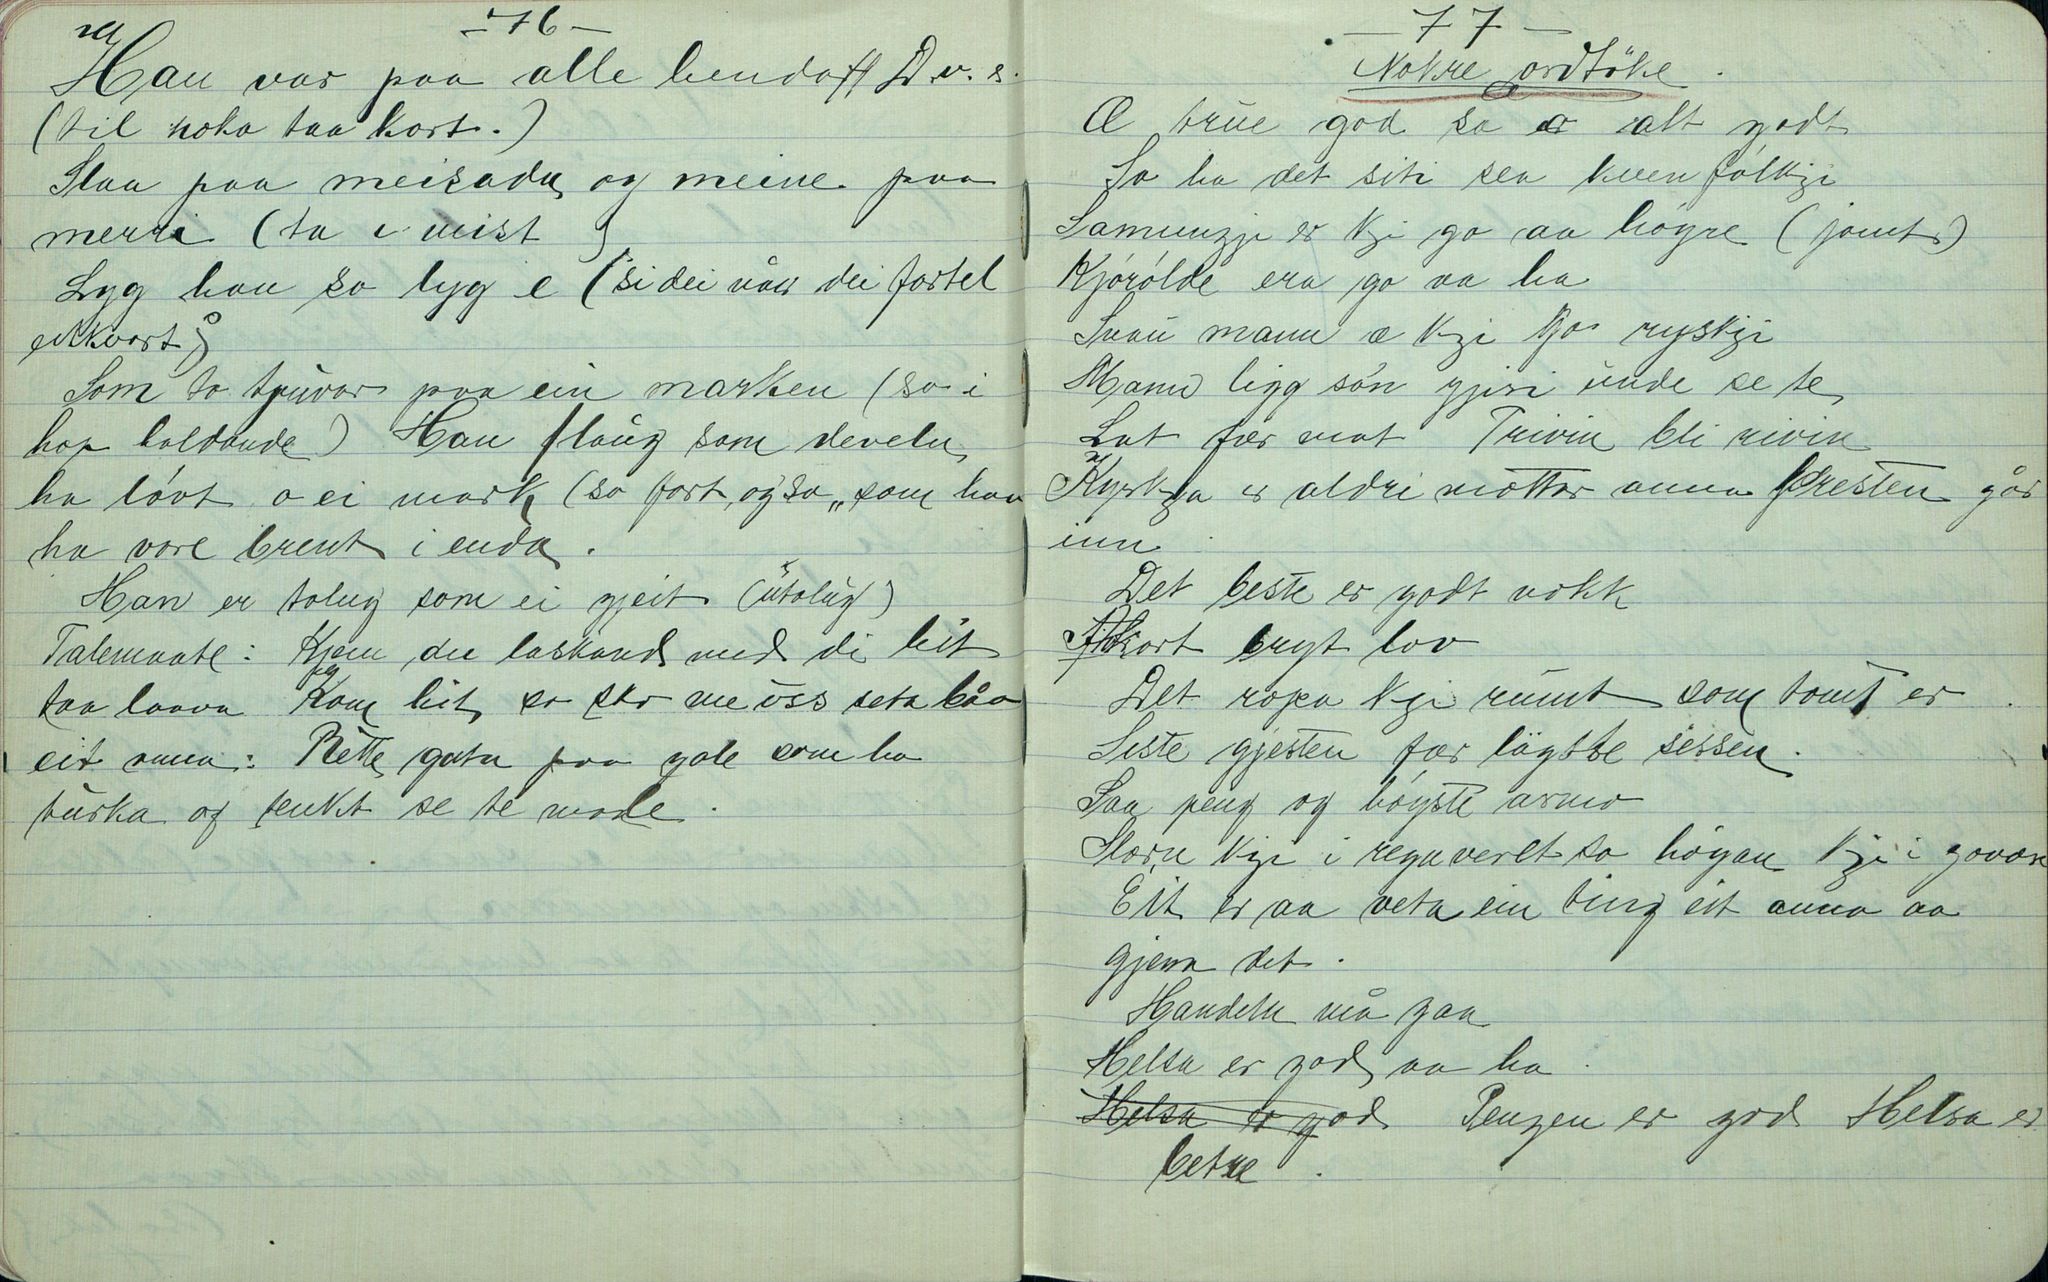 - 76 -
Han var paa alle henda D.v.s.
(til noko taa kort.)
Slaa paa meisadn og meine paa
merri (ta i mist)
Lyg han so lyg e (si dei når dei fortel
eitkvort)
Som to tjuvar paa ein marken (so i
hop haldande) Han flaug som develn
ha lóvt o ei mark (so fort, ogso "som han
ha vore brent i enda.
Han er tolug som ei gjeit (utolug)
Talemaate: Kjem du laskand med di hit
taa laava Kom hit so sko me oss seta båo
eit anna: Rette gatu paa gale som ha
turka og tenkt se te mode.
- 77 -
Nokre ordtöke.
Æ true god so er alt godt
So ha det siti sea kvenfólkji
er kji go aa högre (jamt)
Kjórólde era go aa ha
Snau mann æ kji go ryskji
Mann ligg són gjiri unde se te
Lat fær mat Trivin bli rivin
Kyrkja er aldri nöttar anna Presten går
inn
Det beste er godt nokk
kort bryt lov
Det ropa kji rúmt som tomt er.
Siste gjesten fær lägste sessen.
Saa peng og höyste armo
Storn kji i regnveret so högan kji i govære
Eit er aa veta ein ting eit anna aa
gjera det.
Handeln må gaa
Helsa er god aa ha.
Helsa er god Pengen er god Helsa er
betre.